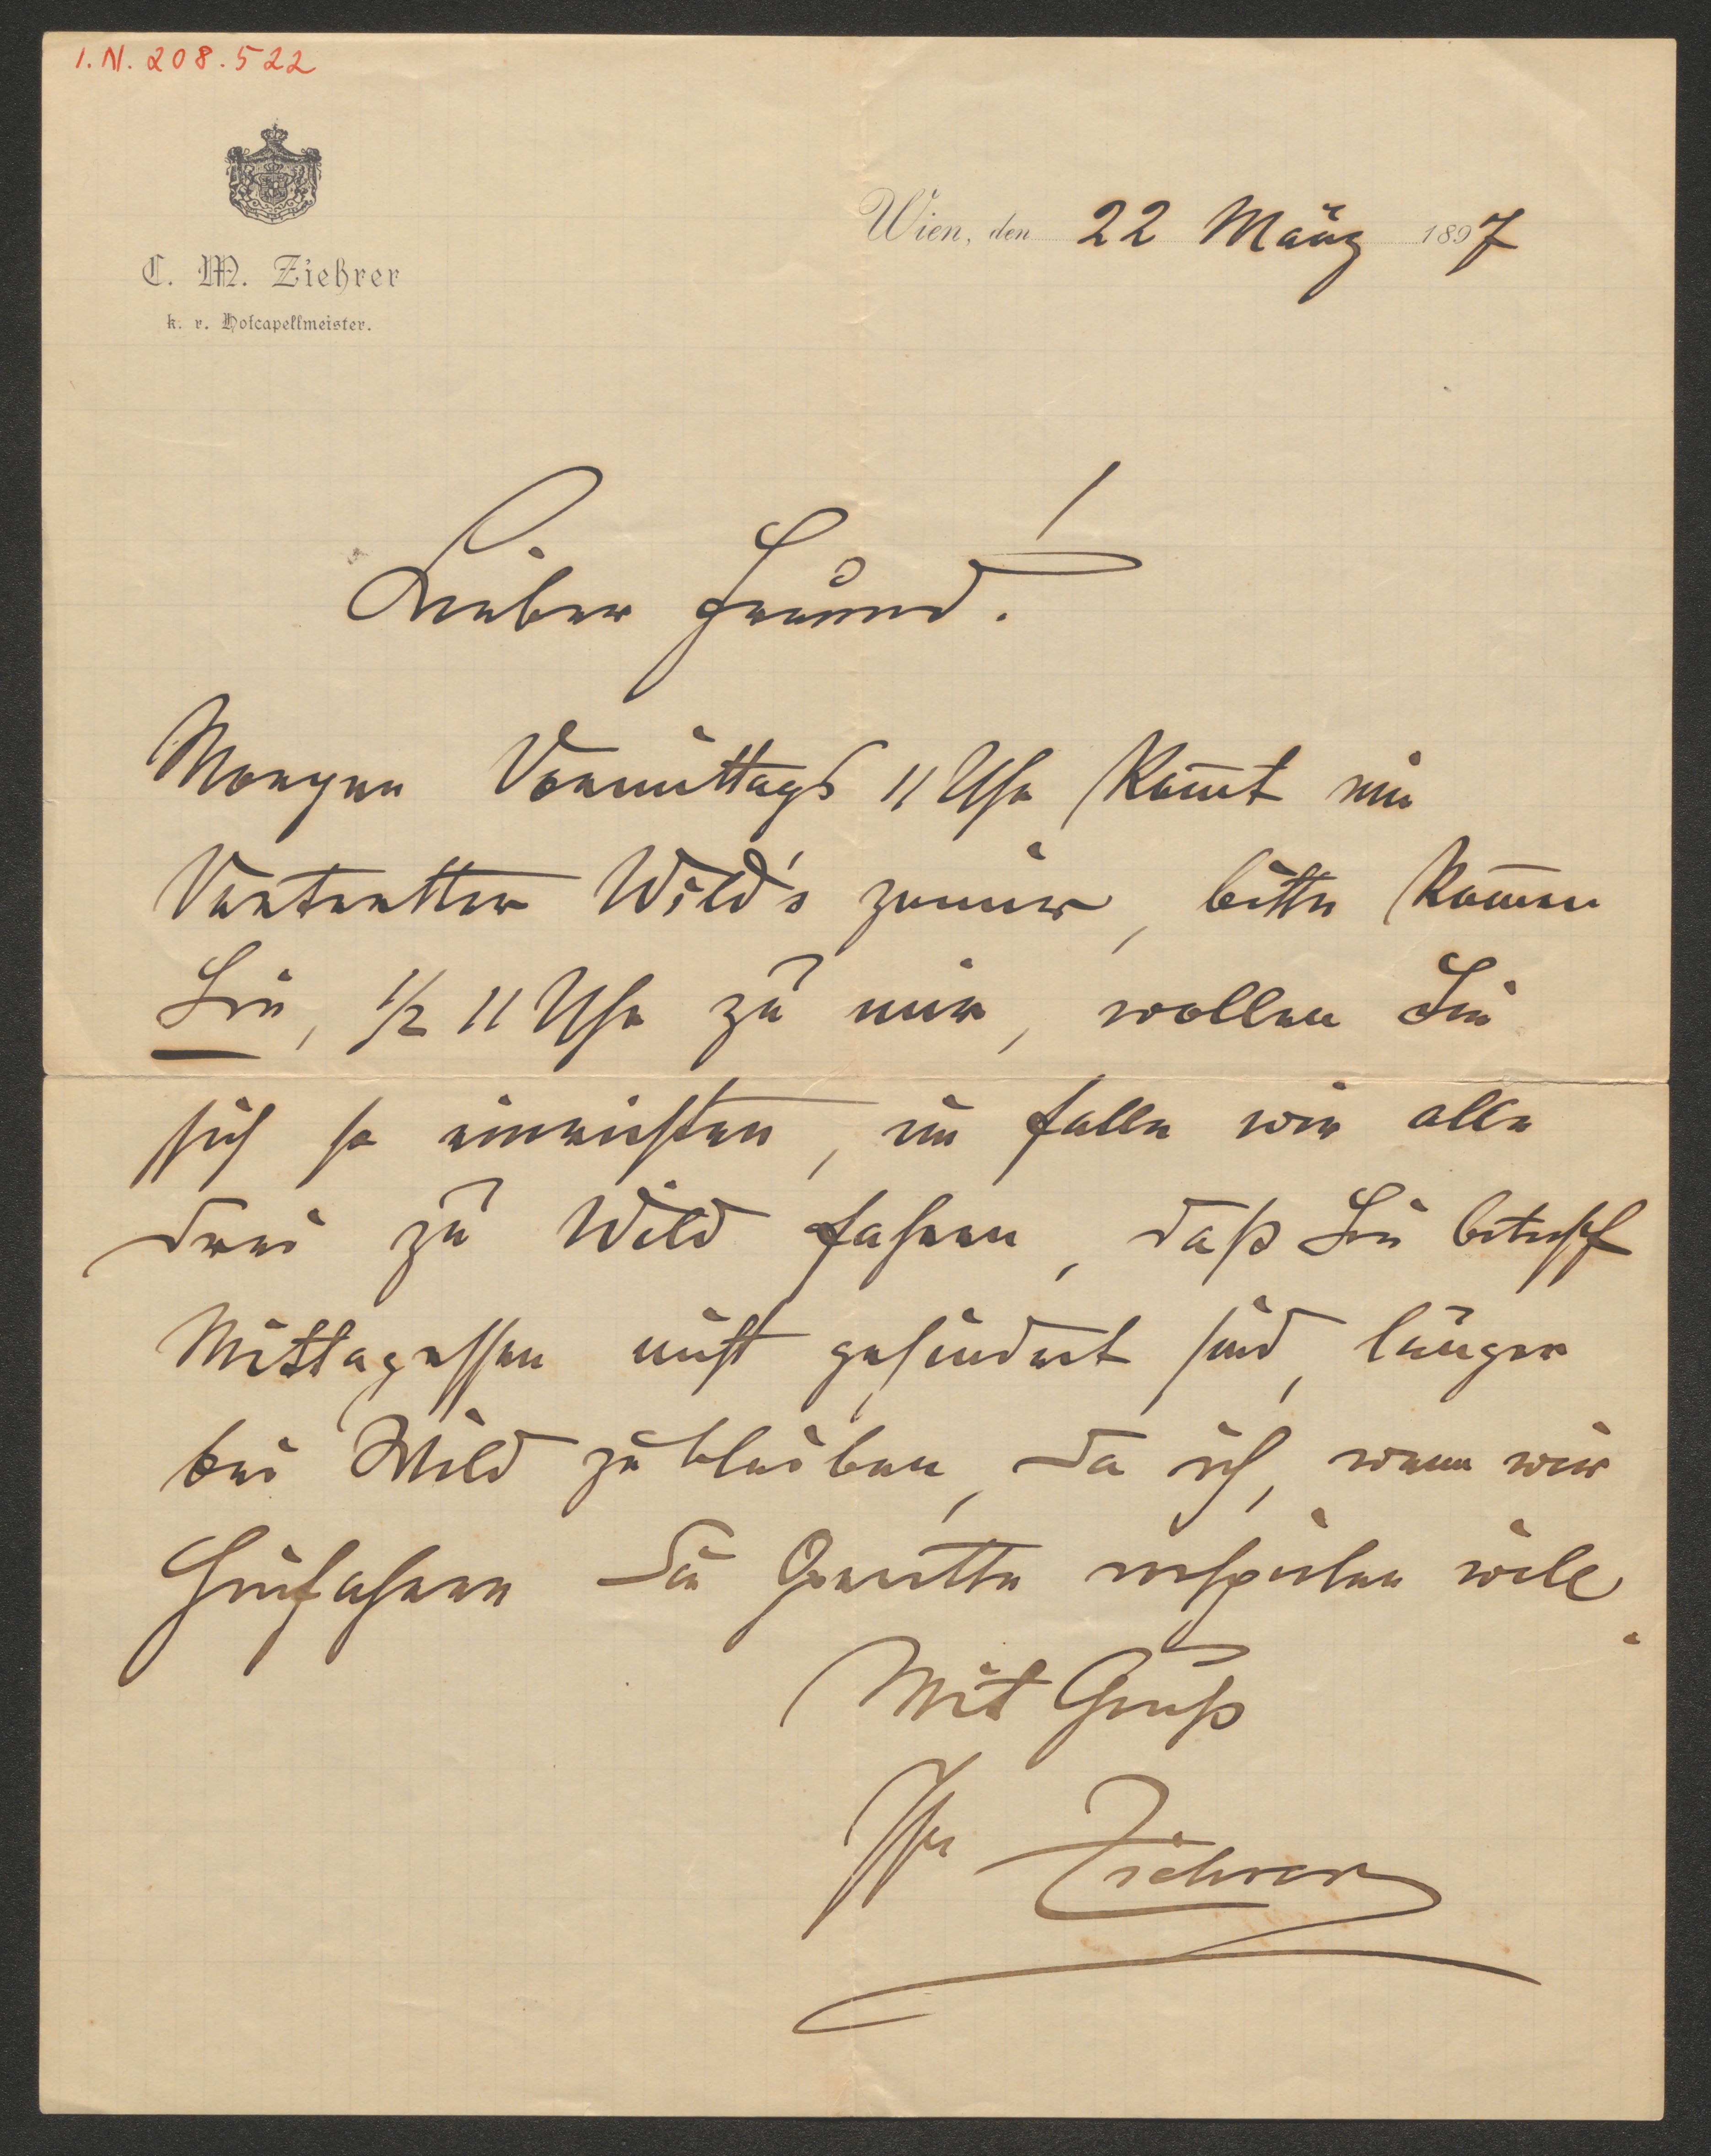 I.N. 208.522
C. M. Ziehrer
k. r. Hofcapellmeister.
Wien, den 22 März 1897
Lieber Freund!
Morgen Vormittags 11 Uhr kom̅t ein
Vertretter Wild's zu mir, bitte kom̅en
Sie, 1/2 11 Uhr zu mir, wollen Sie
sich so einrichten, im falle wir alle
drei zu Wild fahren, daß Sie betreff
Mittagessen nicht gehindert sind, länger
bei Wild zu bleiben, da ich, wenn wir
hinfahren die Operette vorspielen will.
Mit Gruß
Ihr Ziehrer